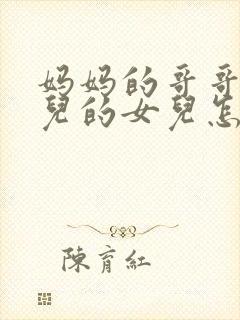 妈妈的哥哥
兒的女兒怎
陳育紅